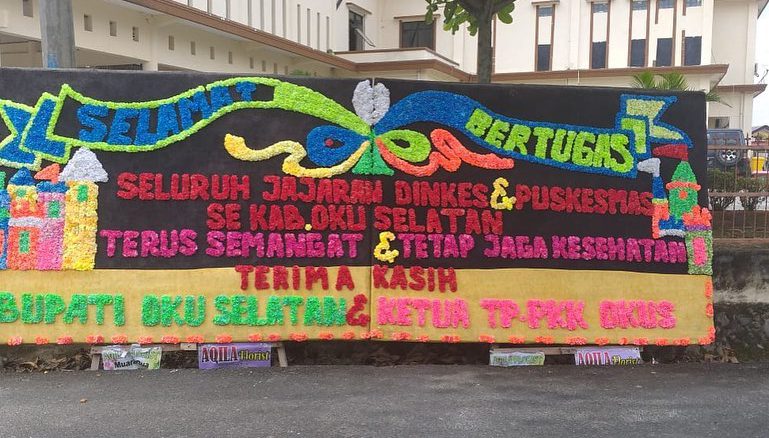 SELAMAT BERTUGAS
SELURUH JAJARAN DINKES & PUSKESMAS
SE KAB.OKU SELATAN
TERUS SEMANGAT & TETAP JAGA KESEHATAN
TERIMA KASIH
BUPATI OKU SELATAN & KETUA TP-PKK OKUS
Muaradua
AQILA Florist
AQILA Florist